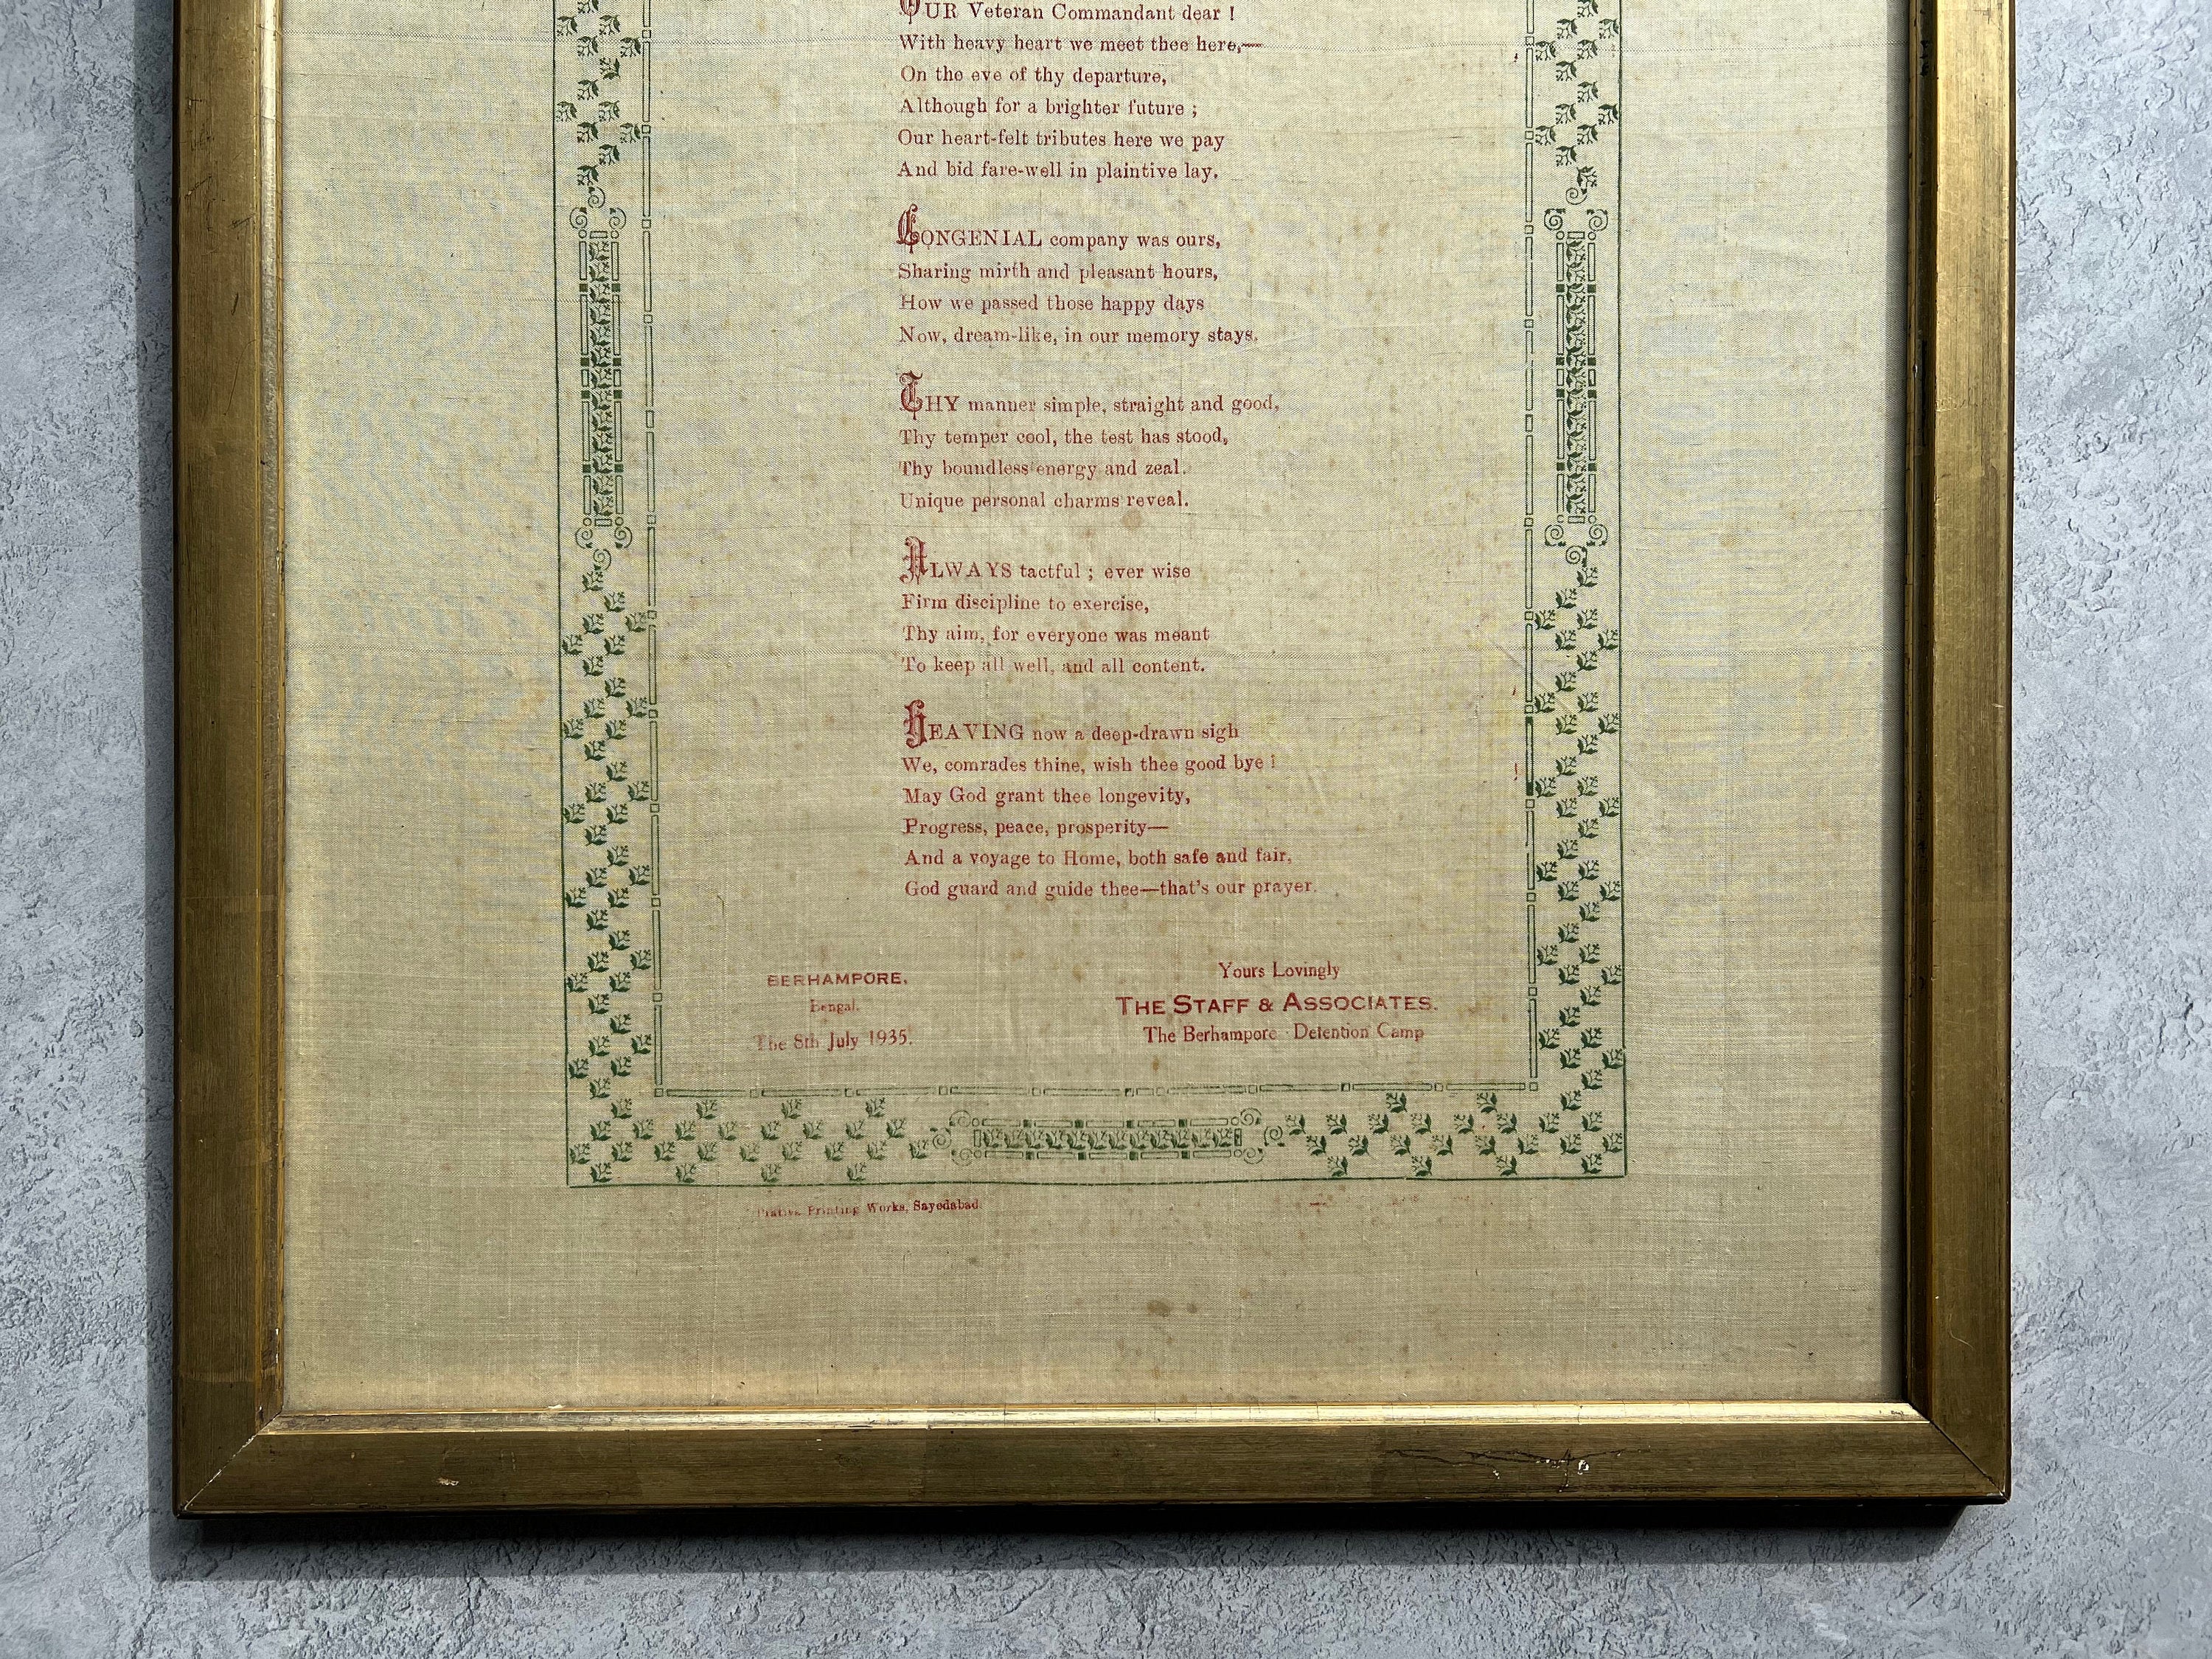 OUR Veteran Commandant dear !
With heavy heart we meet thee here,—
On the eve of thy departure,
Although for a brighter future ;
Our heart-felt tributes here we pay
And bid fare-well in plaintive lay.
CONGENIAL company was ours,
Sharing mirth and pleasant hours,
How we passed those happy days
Now, dream-like, in our memory stays.
THY manner simple, straight and good,
Thy temper cool, the test has stood,
Thy boundless energy and zeal.
Unique personal charms reveal.
ALWAYS tactful ; ever wise
Firm discipline to exercise,
Thy aim, for everyone was meant
To keep all well, and all content.
HEAVING now a deep-drawn sigh
We, comrades thine, wish thee good bye !
May God grant thee longevity,
Progress, peace, prosperity—
And a voyage to Home, both safe and fair,
God guard and guide thee—that's our prayer.
BERHAMPORE.
Bengal.
The 8th July 1935.
Yours Lovingly
THE STAFF & ASSOCIATES.
The Berhampore Detention Camp
Printing Works, Sayedabad.